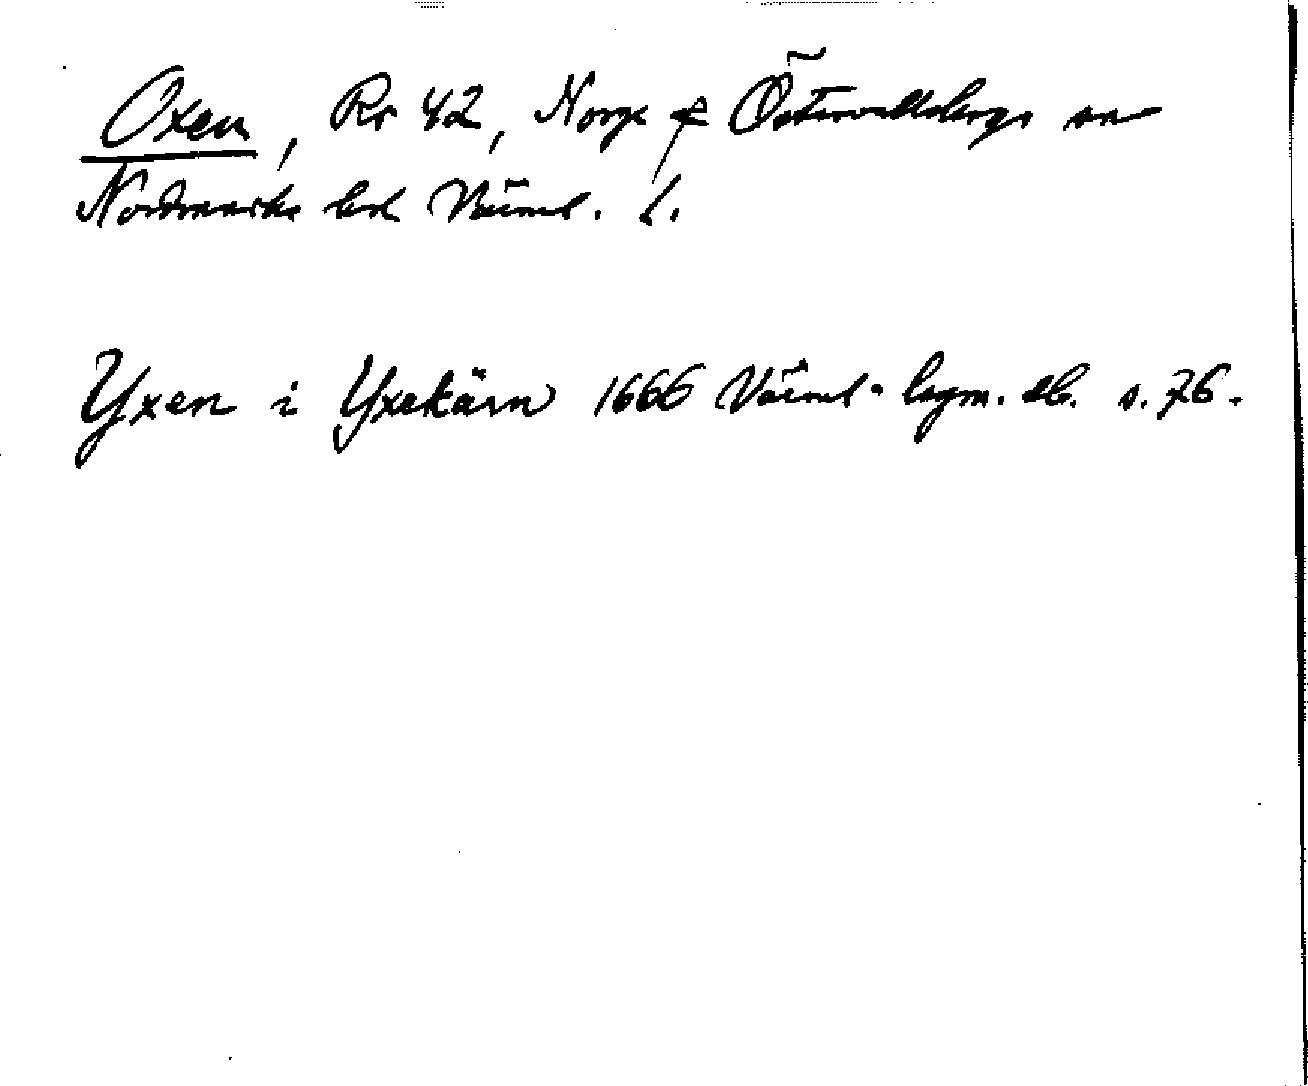 Oxen, Rr 42, Norge & Östervallskogs sn
Nordmarks hd Värml. l.
Yxen i Yxekärn 1666 Värml. s. 76.